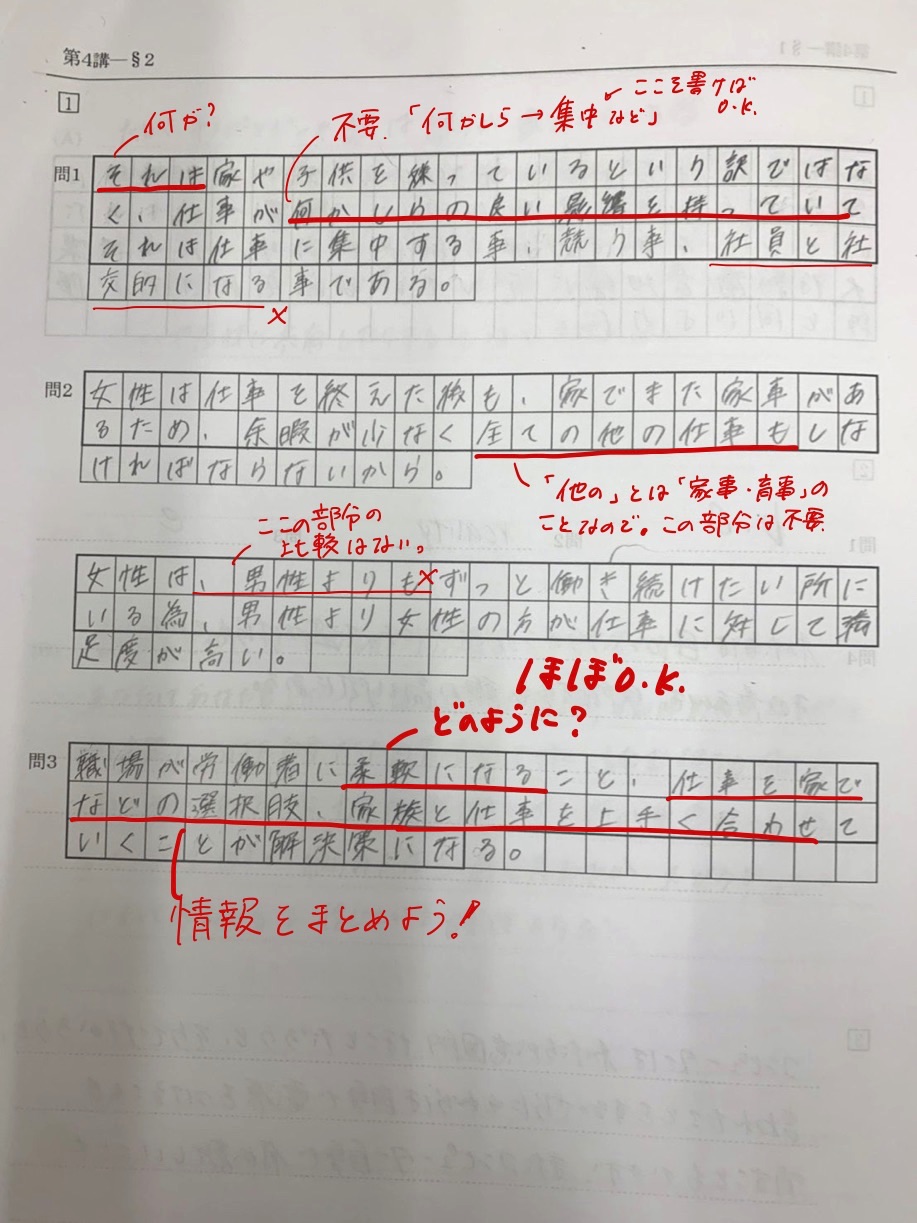 第4講―§2
1
何が?
不要.「何かしら→集中など」
ここを書けば
O.K.
問1
それは家や子供を嫌っているという訳ではな
く、仕事が何かしらの良い影響を持っていて
それは仕事に集中する事、競う事、社員と社
交的になる事である。
×
問2
女性は仕事を終えた後も、家でまた家事があ
るため、余暇が少なく全ての他の仕事もしな
ければならないから。
「他の」とは「家事・育事」の
ことなので。この部分は不要.
ここの部分の
比較はない。
女性は、男性よりも×ずっと働き続けたい所に
いる為、男性より女性の方が仕事に対して満
足度が高い。
ほぼO.K.
どのように?
問3
職場が労働者に柔軟になること、仕事を家で
などの選択肢、家族と仕事を上手く合わせて
いくことが解決策になる。
情報をまとめよう!